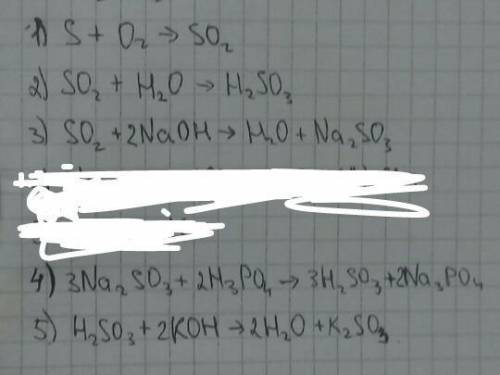 1) S + O₂ → SO₂
2) SO₂ + H₂O → H₂SO₃
3) SO₂ + 2NaOH → H₂O + Na₂SO₃
4) 3Na₂SO₃ + 2H₃PO₄ → 3H₂SO₃ + 2Na₃PO₄
5) H₂SO₃ + 2KOH → 2H₂O + K₂SO₃